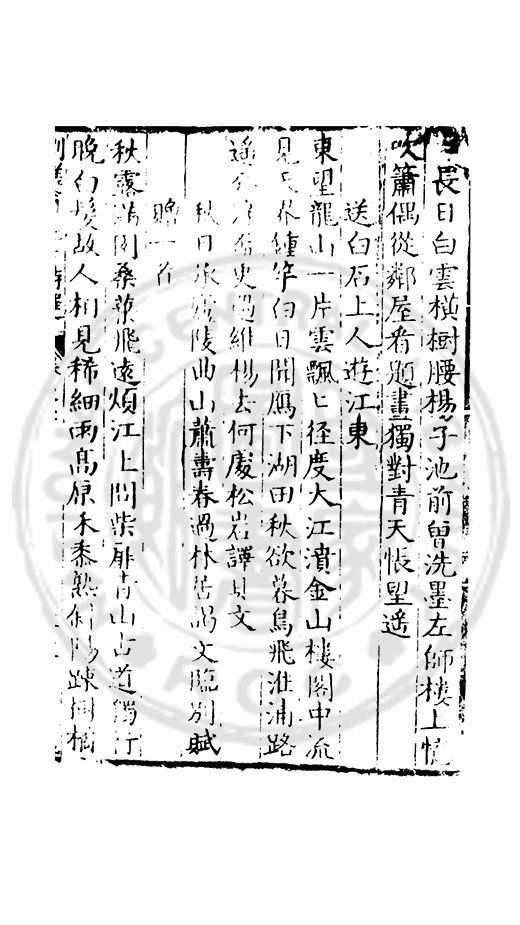 長日白雲橫樹腰楊子池前曾洗墨左師樓上憶
吹簫偶從鄰屋看題畫獨對青天悵望遙
送白石上人遊江東
東望龍山一片雲飄上徑度大江濆金山樓閣中流
見天界鐘竿白日聞鴈下湖田秋欲暮鳥飛淮浦路
遙分更過維楊去何處松岩譯貝文
秋日承陵曲山蕭壽春過林居謁文臨別賦
贈一首
秋露園桑葉飛遠煩江上問柴扉青山古道獨行
晚白髮故人相見稀細雨高原禾黍熟斜陽疎樹橘